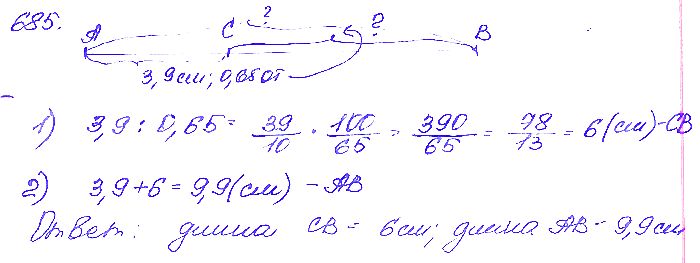 685.
? ?
A C B
3,9 см; 0,65 от
1) 3,9 : 0,65 = 39/10 · 100/65 = 390/65 = 78/13 = 6 (см) - CB
2) 3,9 + 6 = 9,9 (см) - AB
Ответ: длина CB = 6 см; длина AB - 9,9 см